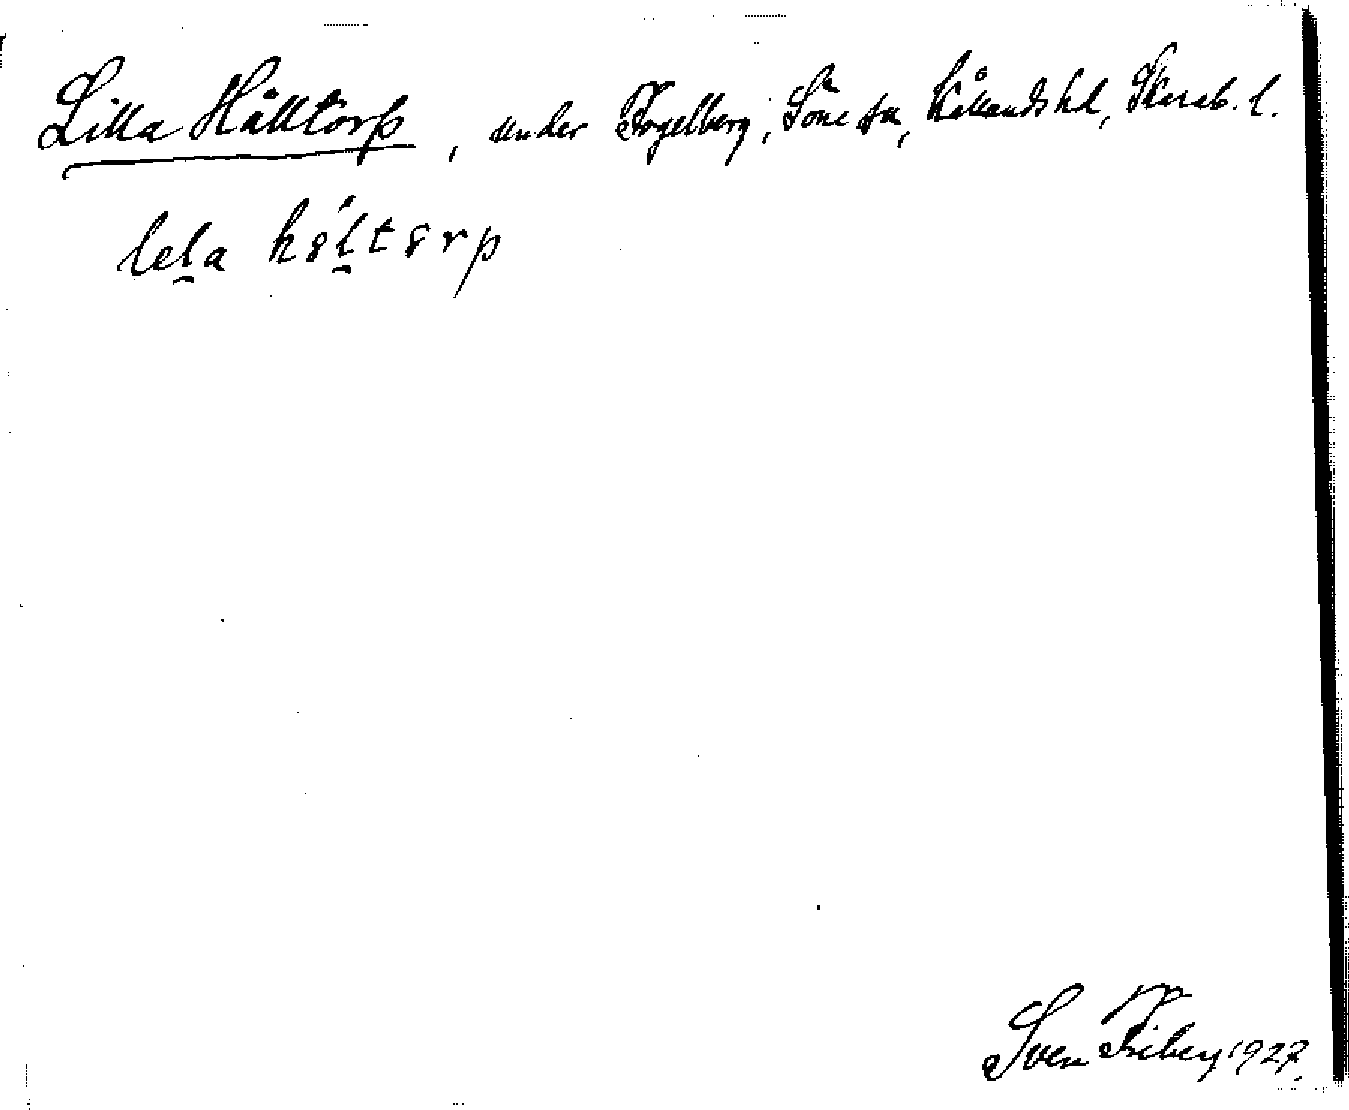 Lilla Hålltorp, under Fogelberg, Söne sn, Kållands hd, Skarab. l.
lela håltorp
Sven Friberg 1927.